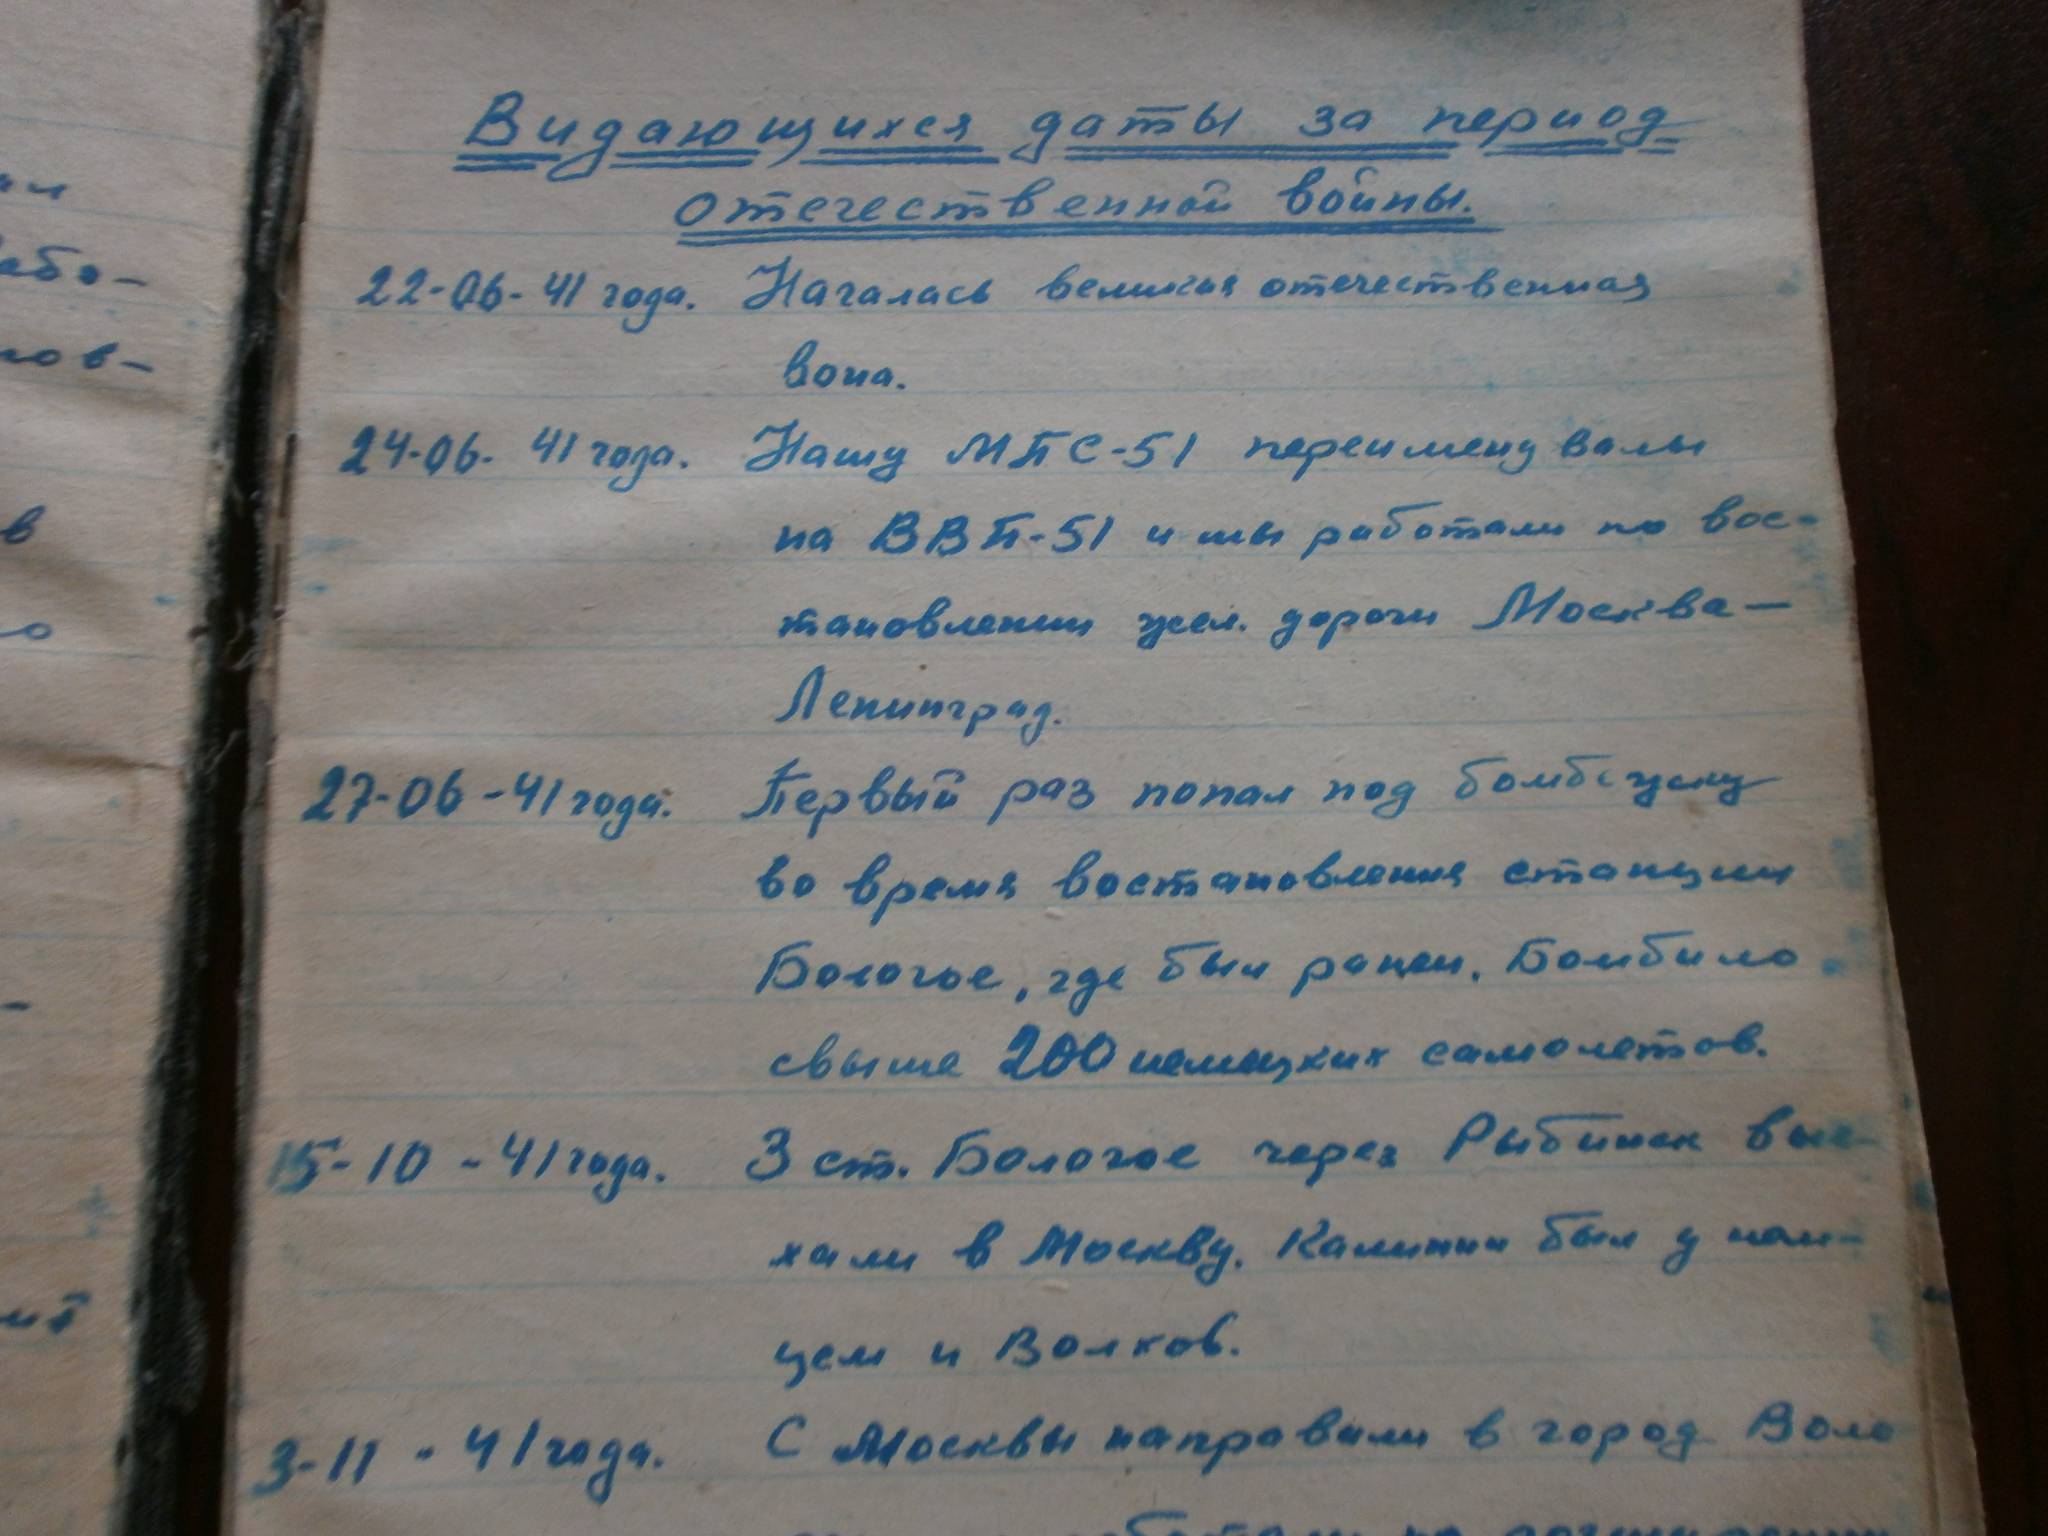 ан
або-
нов-
в
о
-
Видающихся даты за период
отечественной войны.
22-06-41 года. Началась великая отечественная
вона.
24-06-41 года. Нашу МПС-51 переименувалы
на ВВП-51 и мы работали по вос-
тановлении жел. дороги Москва-
Ленинград.
27-06-41 года. Первый раз попал под бомбежку
во время востановления станции
Бологое, где был ранен. Бомбило
свыше 200 немецких самолетов.
15-10-41 года. З ст. Бологое через Рыбинск вые-
хали в Москву. Калинин был у нем-
цем и Волхов.
3-11-41 года. С Москвы направили в город Воло